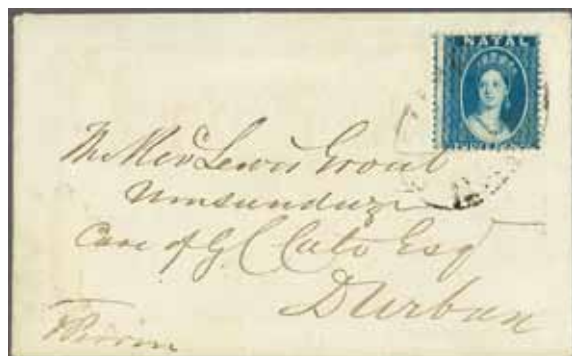 NATAL
THREE PENCE
The Revd Lewis Grout
Umsunduzi
Care of G C Cato Esq
Durban